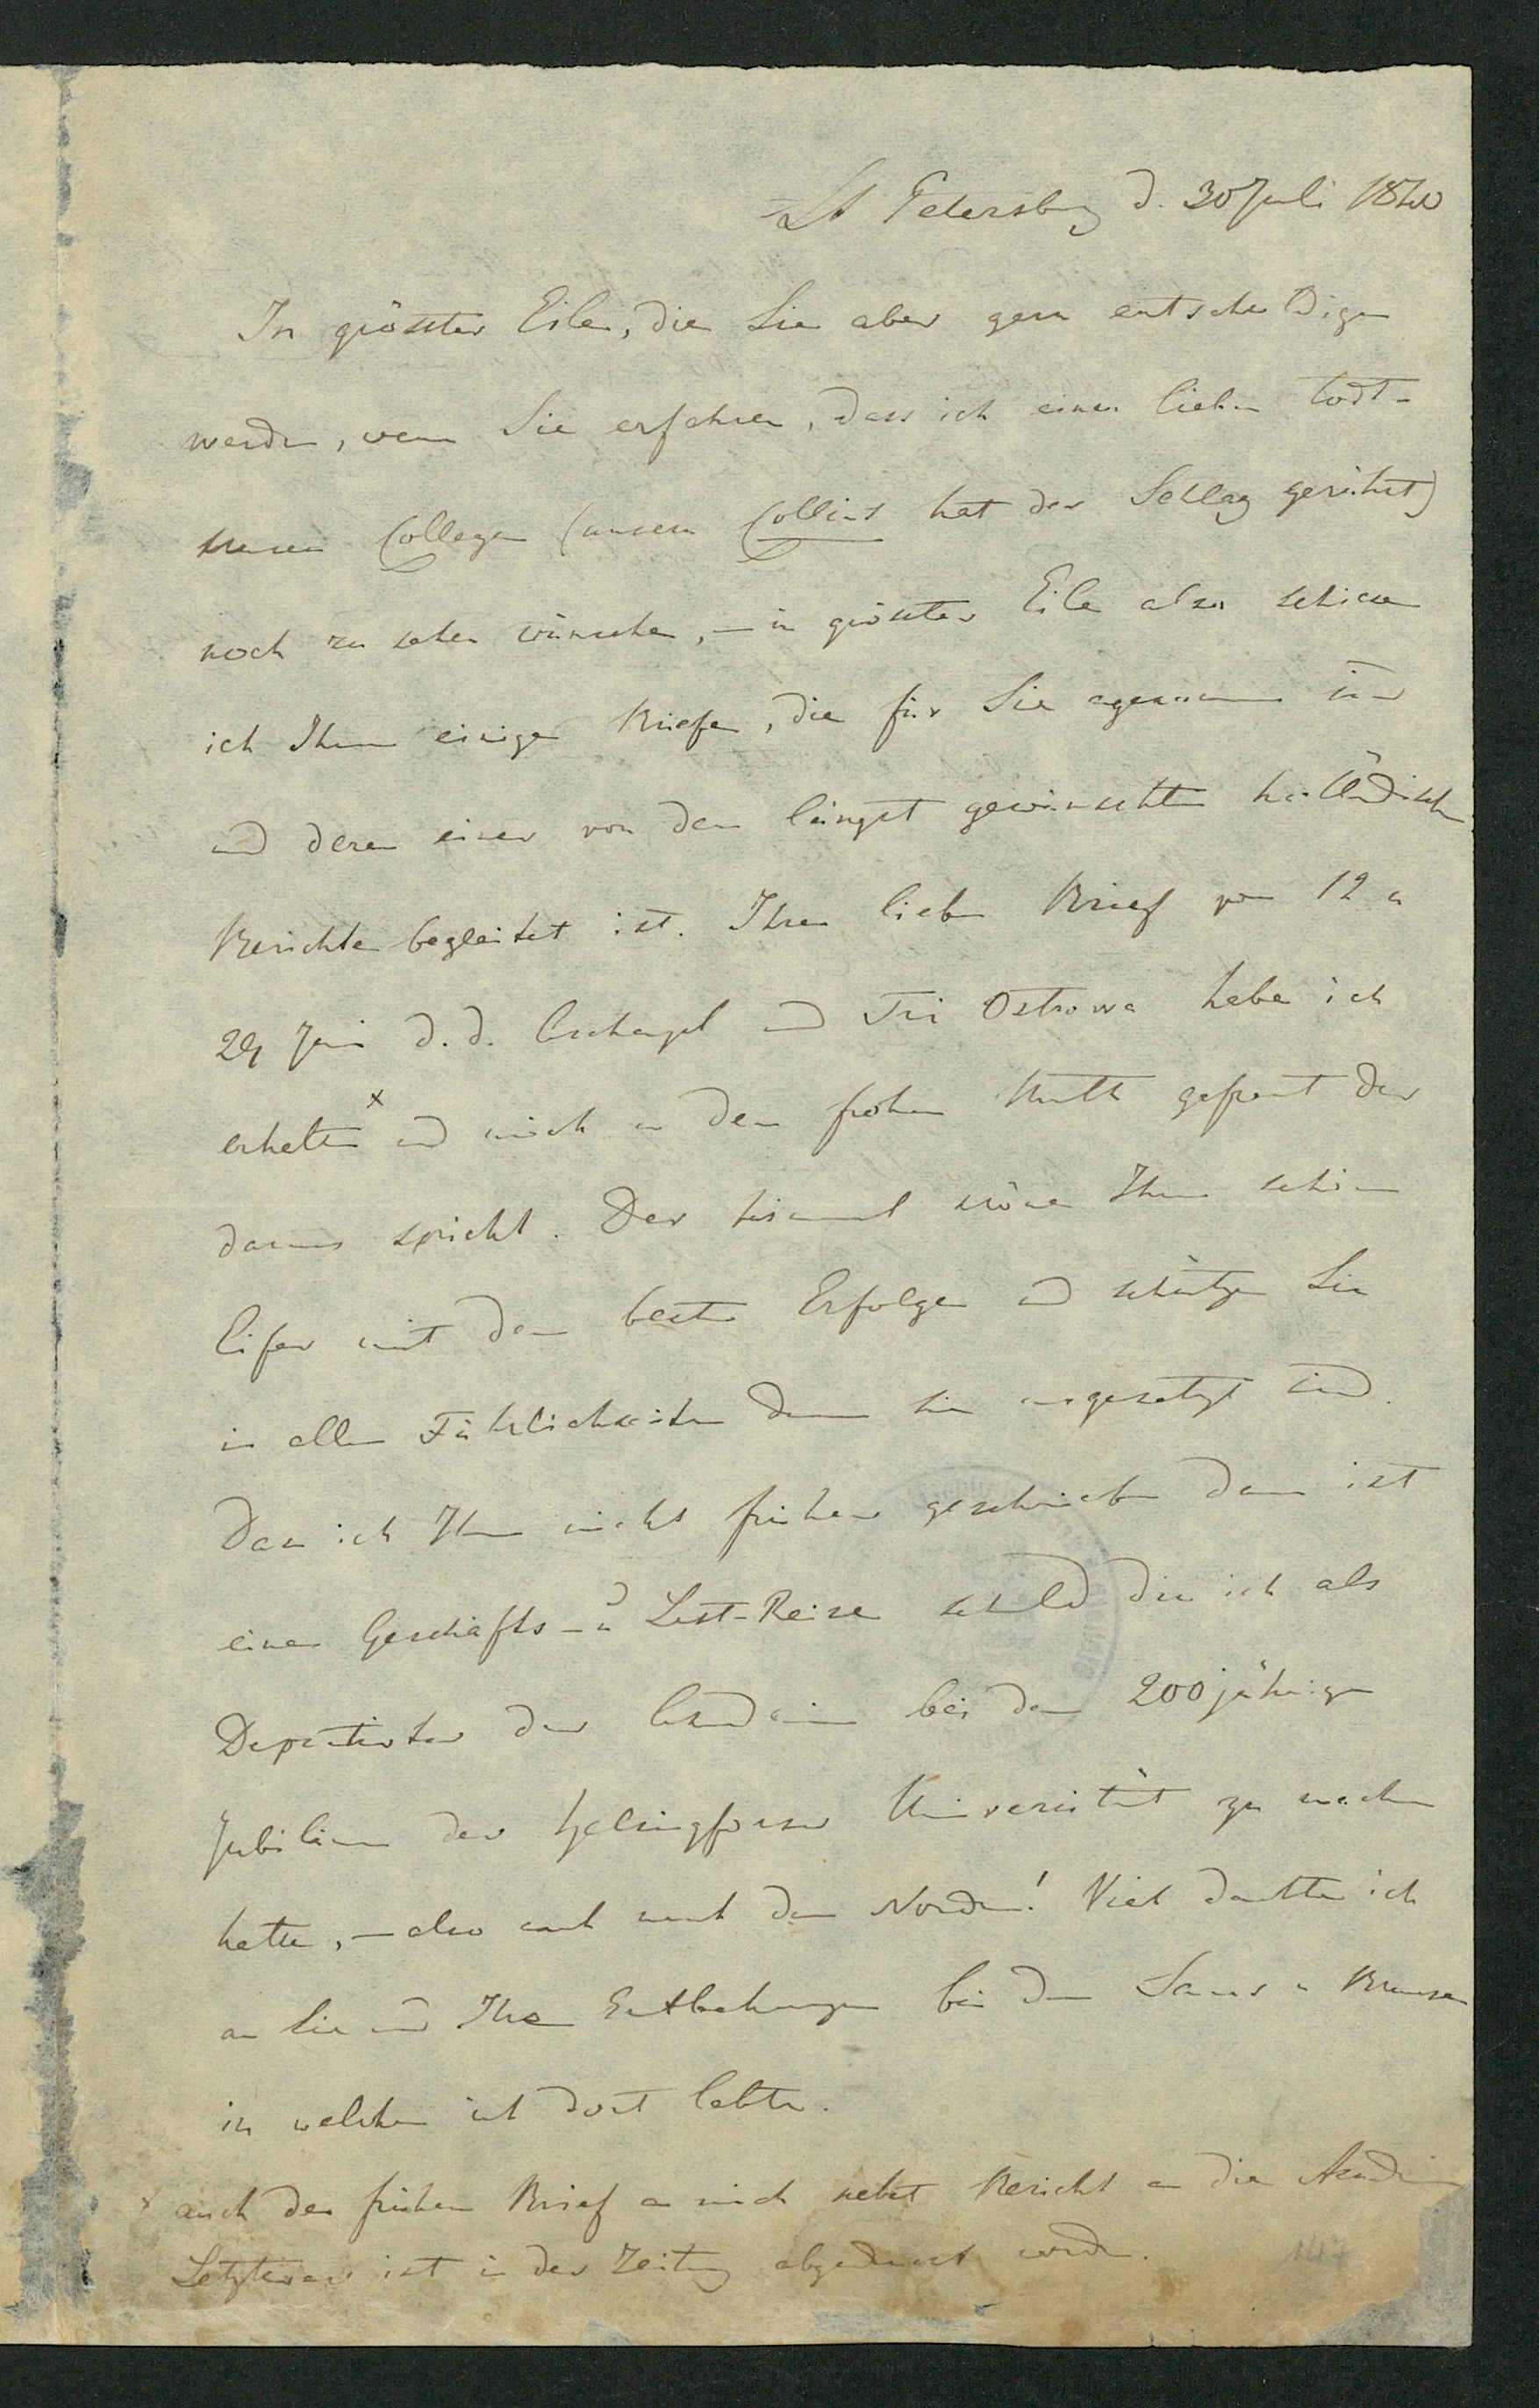 St Petersburg d. 30 Juli 1840
In grösster Eile, die Sie aber gern entschuldigen
werden, wenn Sie erfahren, dass ich einen lieben todt-
kranken Collegen (unsern Collins hat der Schlag gerührt)
noch zu sehen wünsche, – in grösster Eile also schicke
ich Ihnen einige Briefe, die für Sie angekommen sind
und deren einer von den längst gewünschten holländischen
Berichten begleitet ist. Ihren lieben Brief vom 12 u
29 Juni d. d. Archangel und Tri Ostrowa habe ich
erhalten x und mich an dem frohen Muth gefreut der
daraus spricht. Der Himmel kröne Ihren schönen
Eifer mit den besten Erfolgen und schütze Sie
in allen Fährlichkeiten denen Sie ausgesetzt sind.
Dass ich Ihnen nicht früher geschrieben daran ist
eine Geschäfts- u Lust-Reise schuld die ich als
Deputirter der Academie bei dem 200jährigen
Jubiläum der Helsingforser Universität zu machen
hatte, – also auch nach dem Norden! Viel dachte ich
an Sie und Ihre Entbehrungen bei dem Saus u Brause
in welchem ich dort lebte.
x auch den frühern Brief an mich nebst Bericht an die Akademie
Letzterer ist in der Zeitung abgedruckt worden.